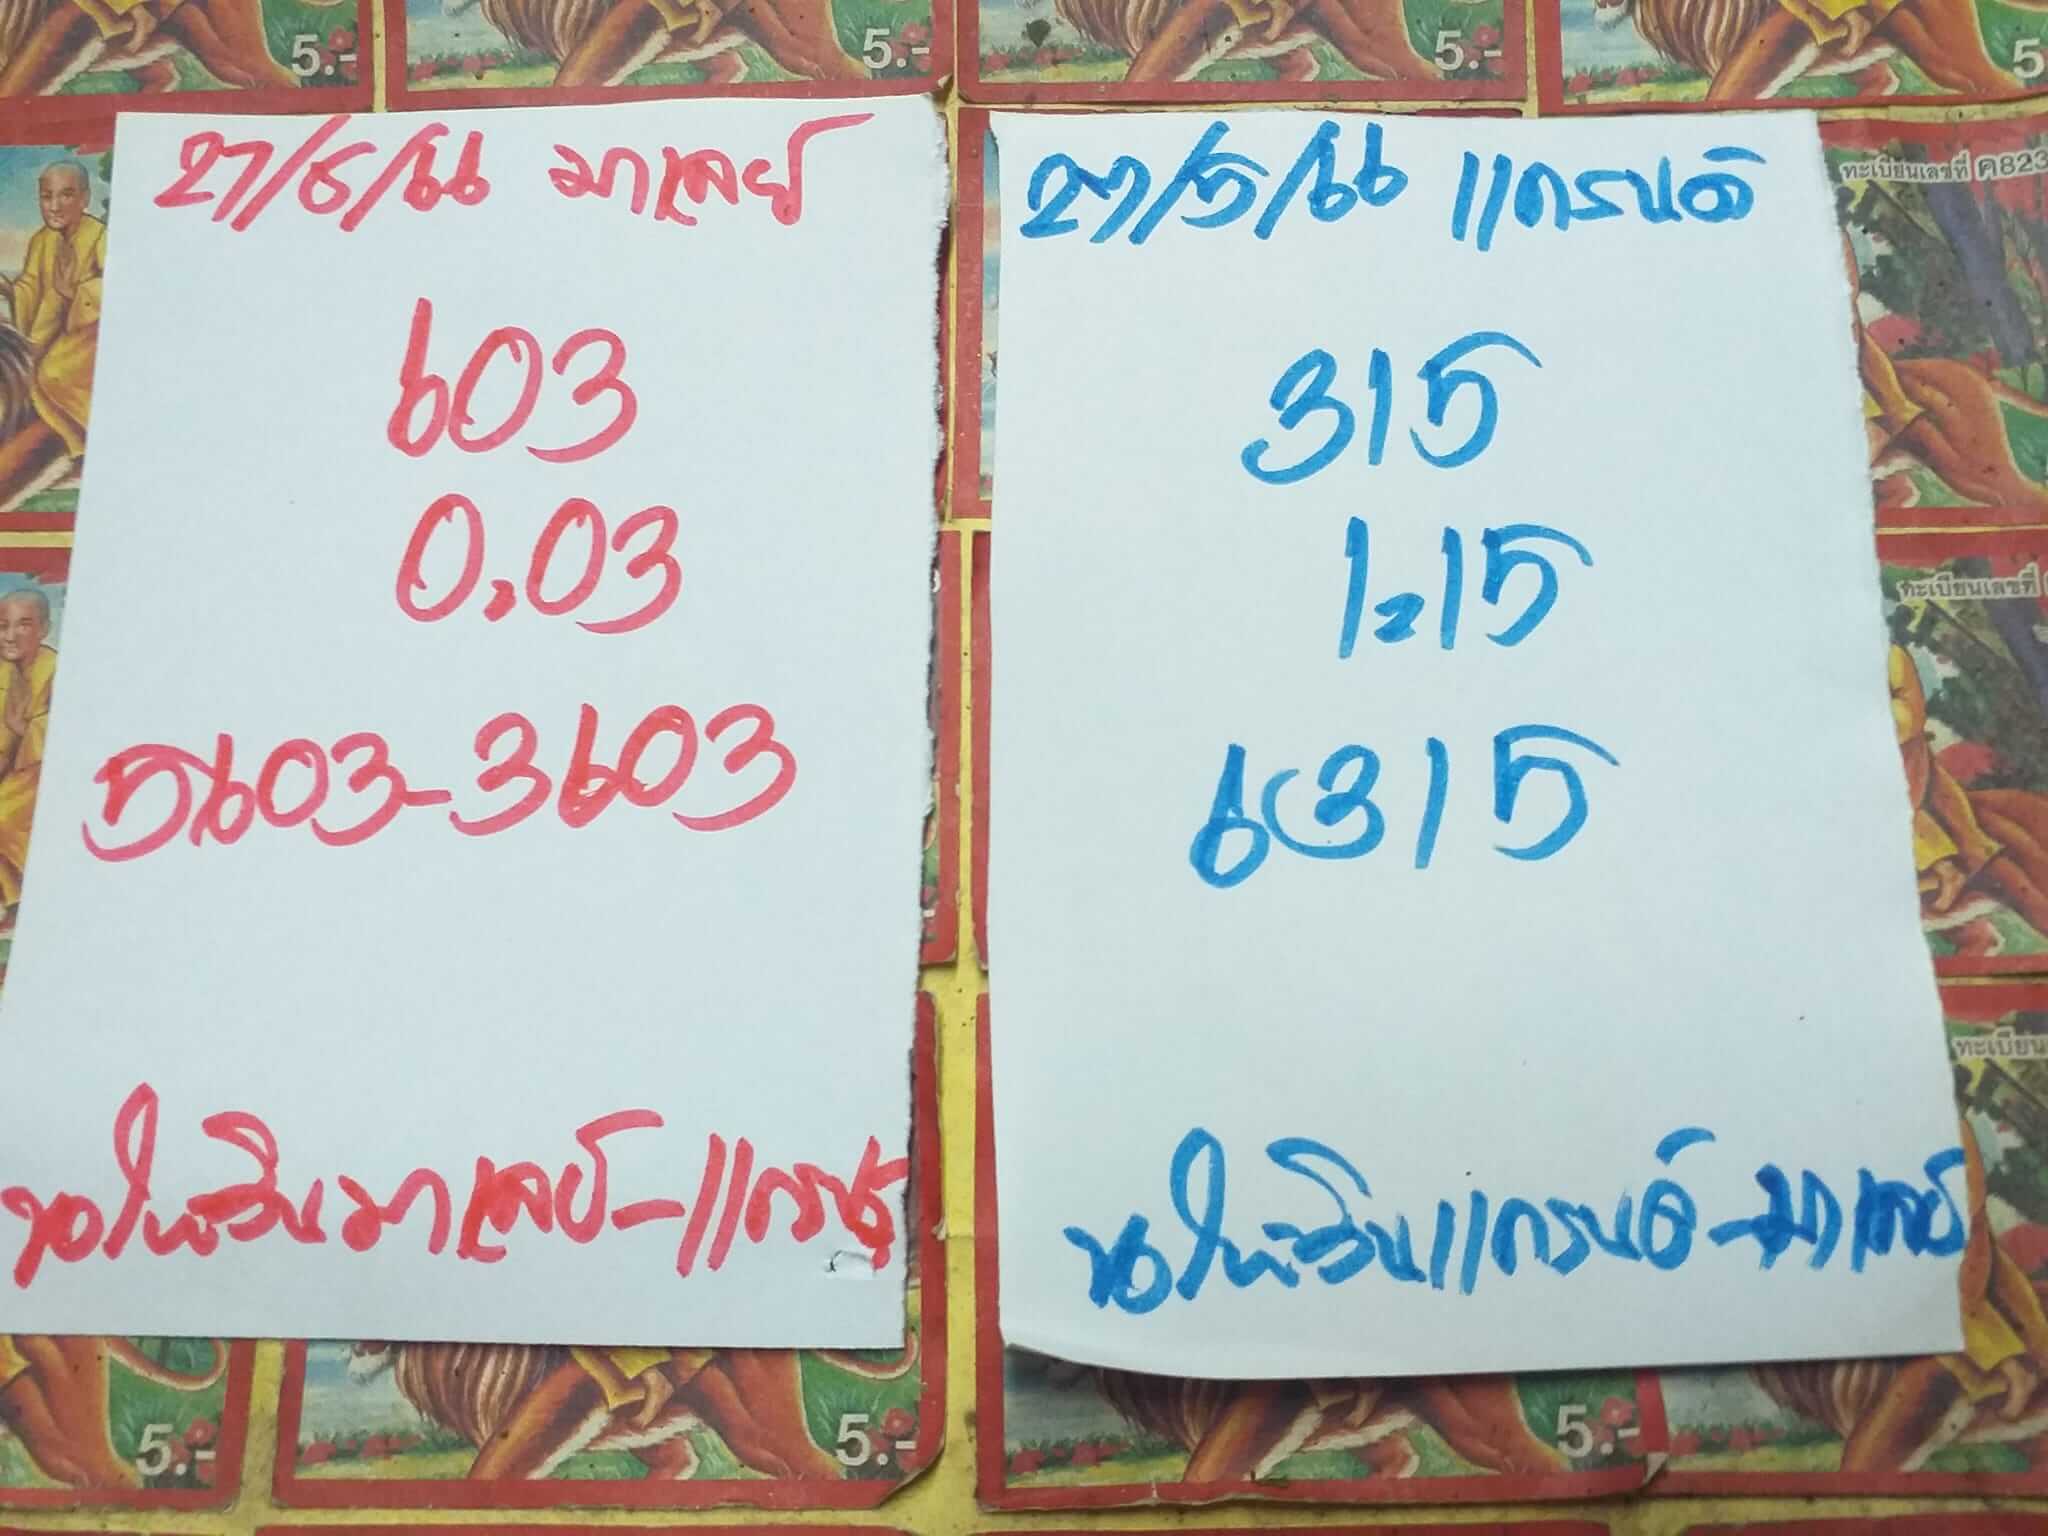 27/5/66 มาเลย์
603
0.03
5603-3603
ขอให้วินมาเลย์-แกรน
27/5/66 แกรนด์
315
1.15
6315
ขอให้วินแกรนด์-มาเลย์
5.-
5.-
5.-
5
ทะเบียนเลขที่ ค823
ทะเบียนเลขที่
ทะเบียน
5.-
5.-
5.-